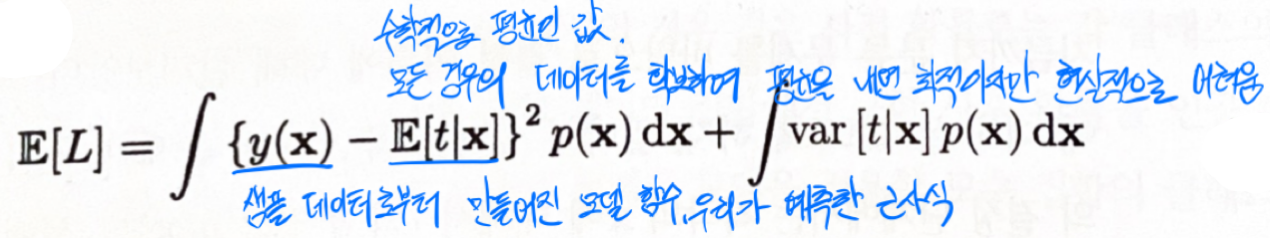 수학적으로 평균인 값.
모든 경우의 데이터를 확보하여 평균을 내면 최적이지만 현실적으로 어려움
𝔼[L] = ∫ {y(x) − 𝔼[t|x]}² p(x) dx + ∫ var [t|x] p(x) dx
샘플 데이터로부터 만들어진 모델 함수, 우리가 예측한 근사식